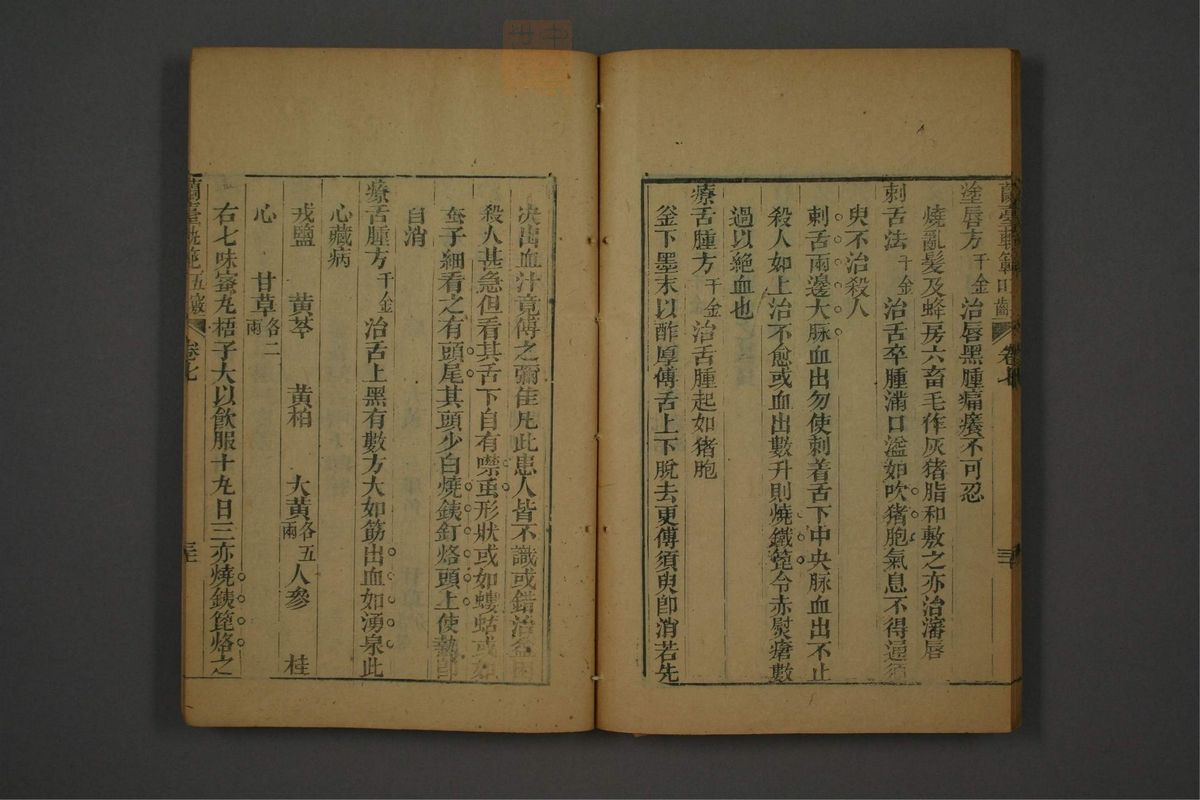 蘭臺軌範口齒　卷七　三十
塗唇方千金　治唇黑腫痛癢不可忍
燒亂髮及蜂房六畜毛作灰猪脂和敷之亦治瀋唇
刺舌法千金　治舌卒腫滿口溢如吹猪胞氣息不得通須
臾不治殺人
刺舌兩邊大脉血出勿使刺着舌下中央脉血出不止
殺人如上治不愈或血出數升則燒鐵篦令赤熨瘡數
過以絶血也
療舌腫方千金治舌腫起如猪胞
釜下墨末以酢厚傅舌上下脫去更傅須臾卽消若先
决出血汁竟傅之彌佳凡此患人皆不識或錯治益困
殺人甚急但看其舌下自有噤䖝形狀或如螻蛄或如
蚕子細看之有頭尾其頭少白燒鐵釘烙頭上使熱卽
自消
療舌腫方千金　治舌上黑有數方大如筯出血如湧泉此
心藏病
戎鹽　黄芩　黄柏　大黄各五兩人參　桂
心　甘草各二兩
右七味蜜丸梧子大以飲服十丸日三亦燒鐵篦烙之
蘭臺軌範五竅　卷七